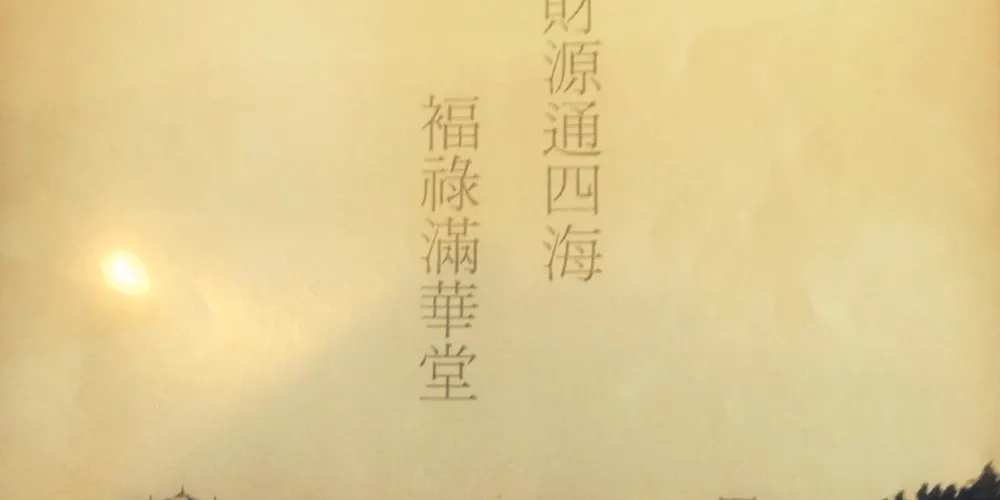 財源通四海
福祿滿華堂